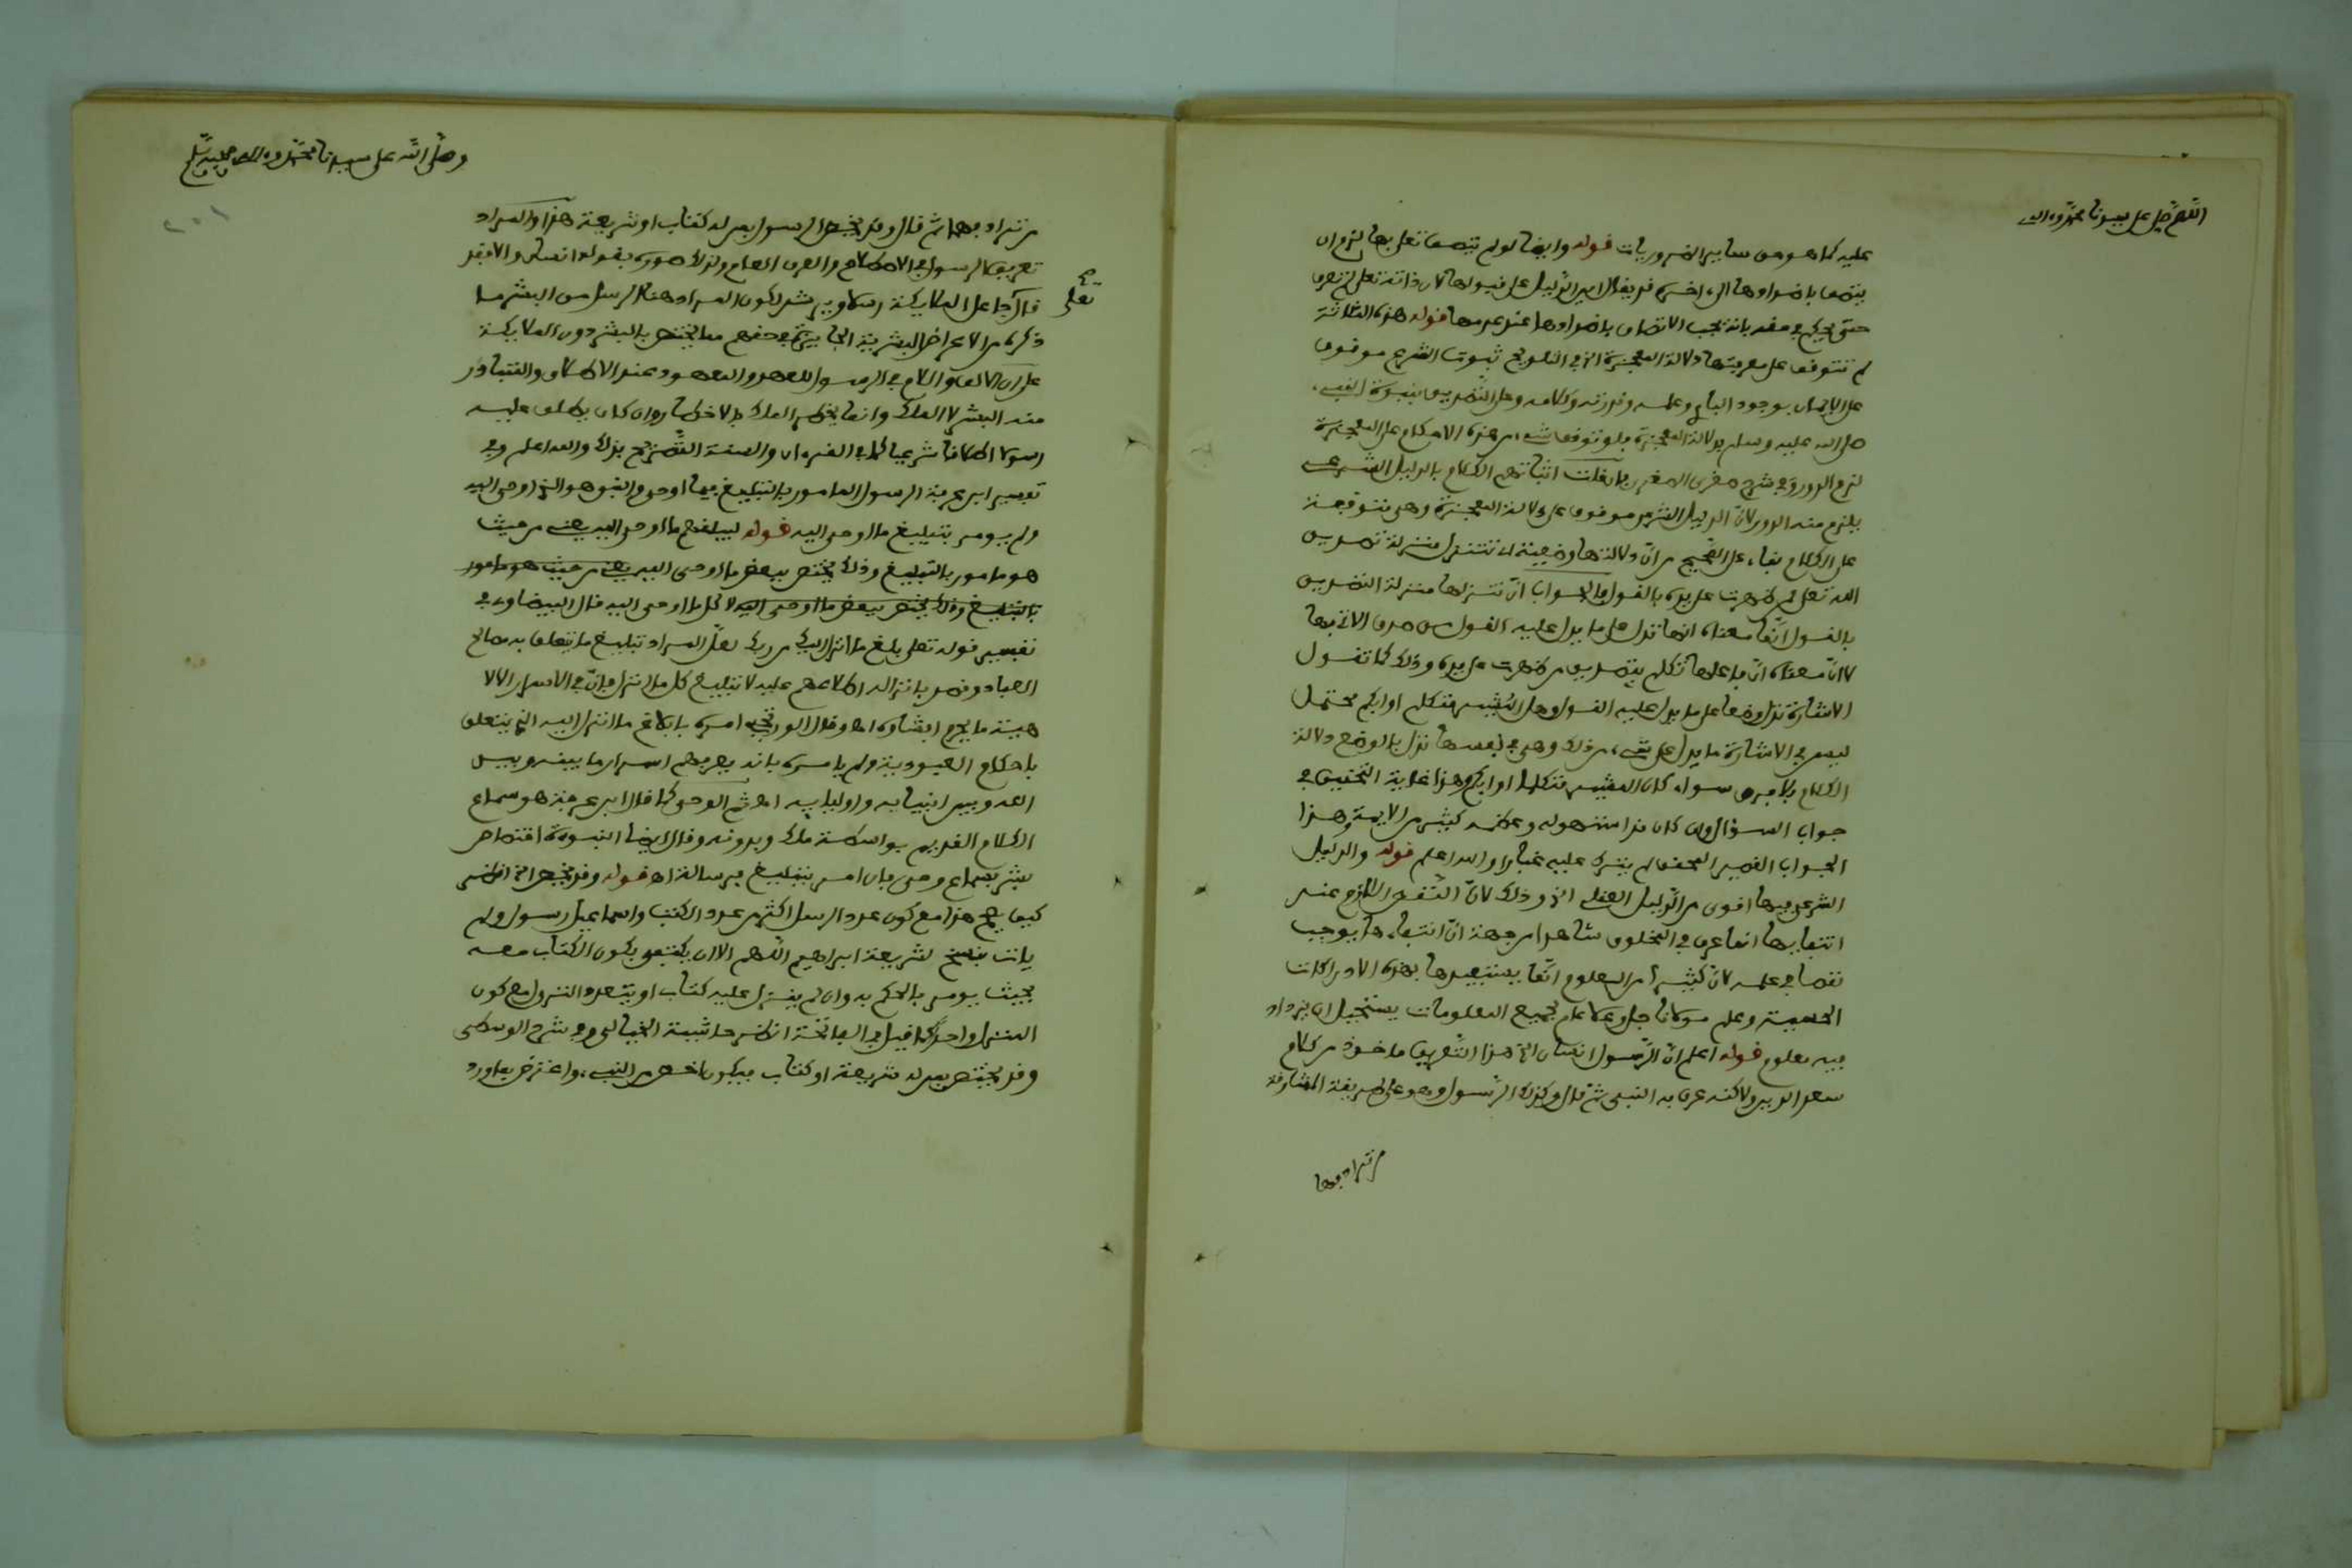 اللهم صل على سيدنا محمد وءاله
عليه كما هو من ساير الضروريات قوله وايضا لو لم يتصف تعلى بها لزم ان
يتصف باضدادها الى اخره قد يقال ان الدليل على قبولها لان ذاته تعلى لم تعرف
حتى يحكم في حقه بانه يجب الاتصاف باضدادها عند عدمها قوله هذه الثلاثة
لم تتوقف على معرفتها دلالة المعجزة الخ في التلويح ثبوت الشرع موقوف
على الايمان بوجود الباري وعلمه وقدرته وكلامه وعلى التصديق بنبوة النبيء
صلى الله عليه وسلم بدلالة المعجزة فلو توقف شيء من هذه الاحكام على المعجزة
لزم الدور وفي شرح صغرى الصغرى فان قلت اثباتهم الكلام بالدليل الشرعي
يلزم منه الدور لان الدليل الشرعي موقوف على دلالة المعجزة وهي متوقفة
على الكلام بناء على الصحيح من ان دلالتها وضعية لا تتنزل منزلة تصديق
الله تعلى لمن ظهرت على يده بالقول فالجواب ان تنزلها منزلة التصديق
بالقول انما معناه انها تدل على ما يدل عليه القول من صدق الاتي بها
لا ان معناه ان فاعلها تكلم بتصديق من ظهرت على يده وذلك كما تقول
الاشارة تدل وضعا على ما يدل عليه القول وهل المشير متكلم او ابكم محتمل
ليس في الاشارة ما يدل على شيء من ذلك وهي في نفسها تدل بالوضع دلالة
الكلام بلا فرق سواء كان المشير متكلما او ابكم وهذا غاية التحقيق في
جواب السؤال وان كان قد استهوله وعظمه كثير من الايمة وهذا
الجواب القصير المحقق لم يترك عليه غبارا والله اعلم قوله والدليل
الشرعي فيها اقوى من الدليل العقلي الخ وذلك لان النقص اللازم عند
انتفايها انما عرف في المخلوق شاهدا من جهة ان انتفاءها يوجب
نقصا في علمه لان كثيرا من العلوم انما يستفيدها بهذه الادراكات
الحسية وعلم مولانا جل وعلا عام بجميع المعلومات يستحيل ان يزداد
فيه معلوم قوله اعلم ان الرسول انسان الخ هذا التعريف ماخوذ من كلام
سعد الدين ولاكنه عرف به النبي ثم قال وكذلك الرسول وهو على طريقة المشارقة
من ترادفهما
وصلى الله على سيدنا محمد وءاله وصحبه وسلم
٢٠١
من ترادفهما ثم قال وقد يخص الرسول بمن له كتاب او شريعة هذا والمراد
تعريف الرسول في الاصطلاح والعرف العام ولذلك صوره بقوله انسان والا فقد
صح
تعلى
قال جاعل الملايكة رسلا ويرشد لكون المراد هنا الرسل من البشر ما
ذكره من الاعراض البشرية الجايزة في حقهم مما يختص بالبشر دون الملايكة
على ان الالف واللام في الرسول للعهد والمعهود عند الاطلاق والمتبادر
منه البشر لا الملك وانما يخطر الملك بالاخطار وان كان يطلق عليه
رسولا اطلاقا شرعيا كما في القرءان والسنة التصريح بذلك والله اعلم وفي
تفسير ابن عرفة الرسول المامور بالتبليغ فيما اوحي والنبي هو الذي اوحي اليه
ولم يومر بتبليغ ما اوحي اليه قوله ليبلغهم ما اوحي اليه يعني من حيث
هو مامور بالتبليغ وذلك يختص ببعض ما اوحي اليه يعني من حيث هو مامور
بالتبليغ وذلك يختص ببعض ما اوحي اليه لا كل ما اوحي اليه قال البيضاوي في
تفسير قوله تعلى بلغ ما انزل اليك من ربك لعل المراد تبليغ ما يتعلق به مصالح
العباد وقصد بانزاله اطلاعهم عليه لا تبليغ كل ما انزل فان في الاسرار الالا
هية ما يحرم افشاؤه اه وقال الورتجبي امره بابلاغ ما انزل اليه الذي يتعلق
باحكام العبودية ولم يامره بانه يعرفهم اسرار ما بينه وبين
الله وبين انبيايه واوليايه اه ثم الوحي كما قال ابن عرفة هو سماع
الكلام القديم بواسطة ملك وبدونه وقال ايضا النبوءة اختصاص
بشر بسماع وحي فان امر بتبليغ فرسالة اه قوله وقد يخص الخ انظر
كيف يصح هذا مع كون عدد الرسل اكثر من عدد الكتب واسماعيل رسول ولم
يات بنسخ لشريعة ابراهيم اللهم الا ان يكتفى بكون الكتاب معه
بحيث يومر بالحكم به وان لم ينزل عليه كتاب او بتعدد النزول مع كون
المنزل واحدا كما قيل في الفاتحة انظر حاشية الخيالي وفي شرح الوسطى
وقد يختص بمن له شريعة او كتاب فيكون اخص من النبيء واعترض بما ورد